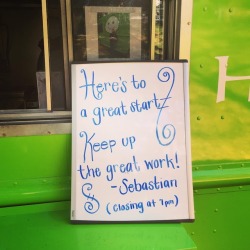 Here's to
a great start!
Keep up
the great work!
- Sebastian
(closing at 7pm)
H